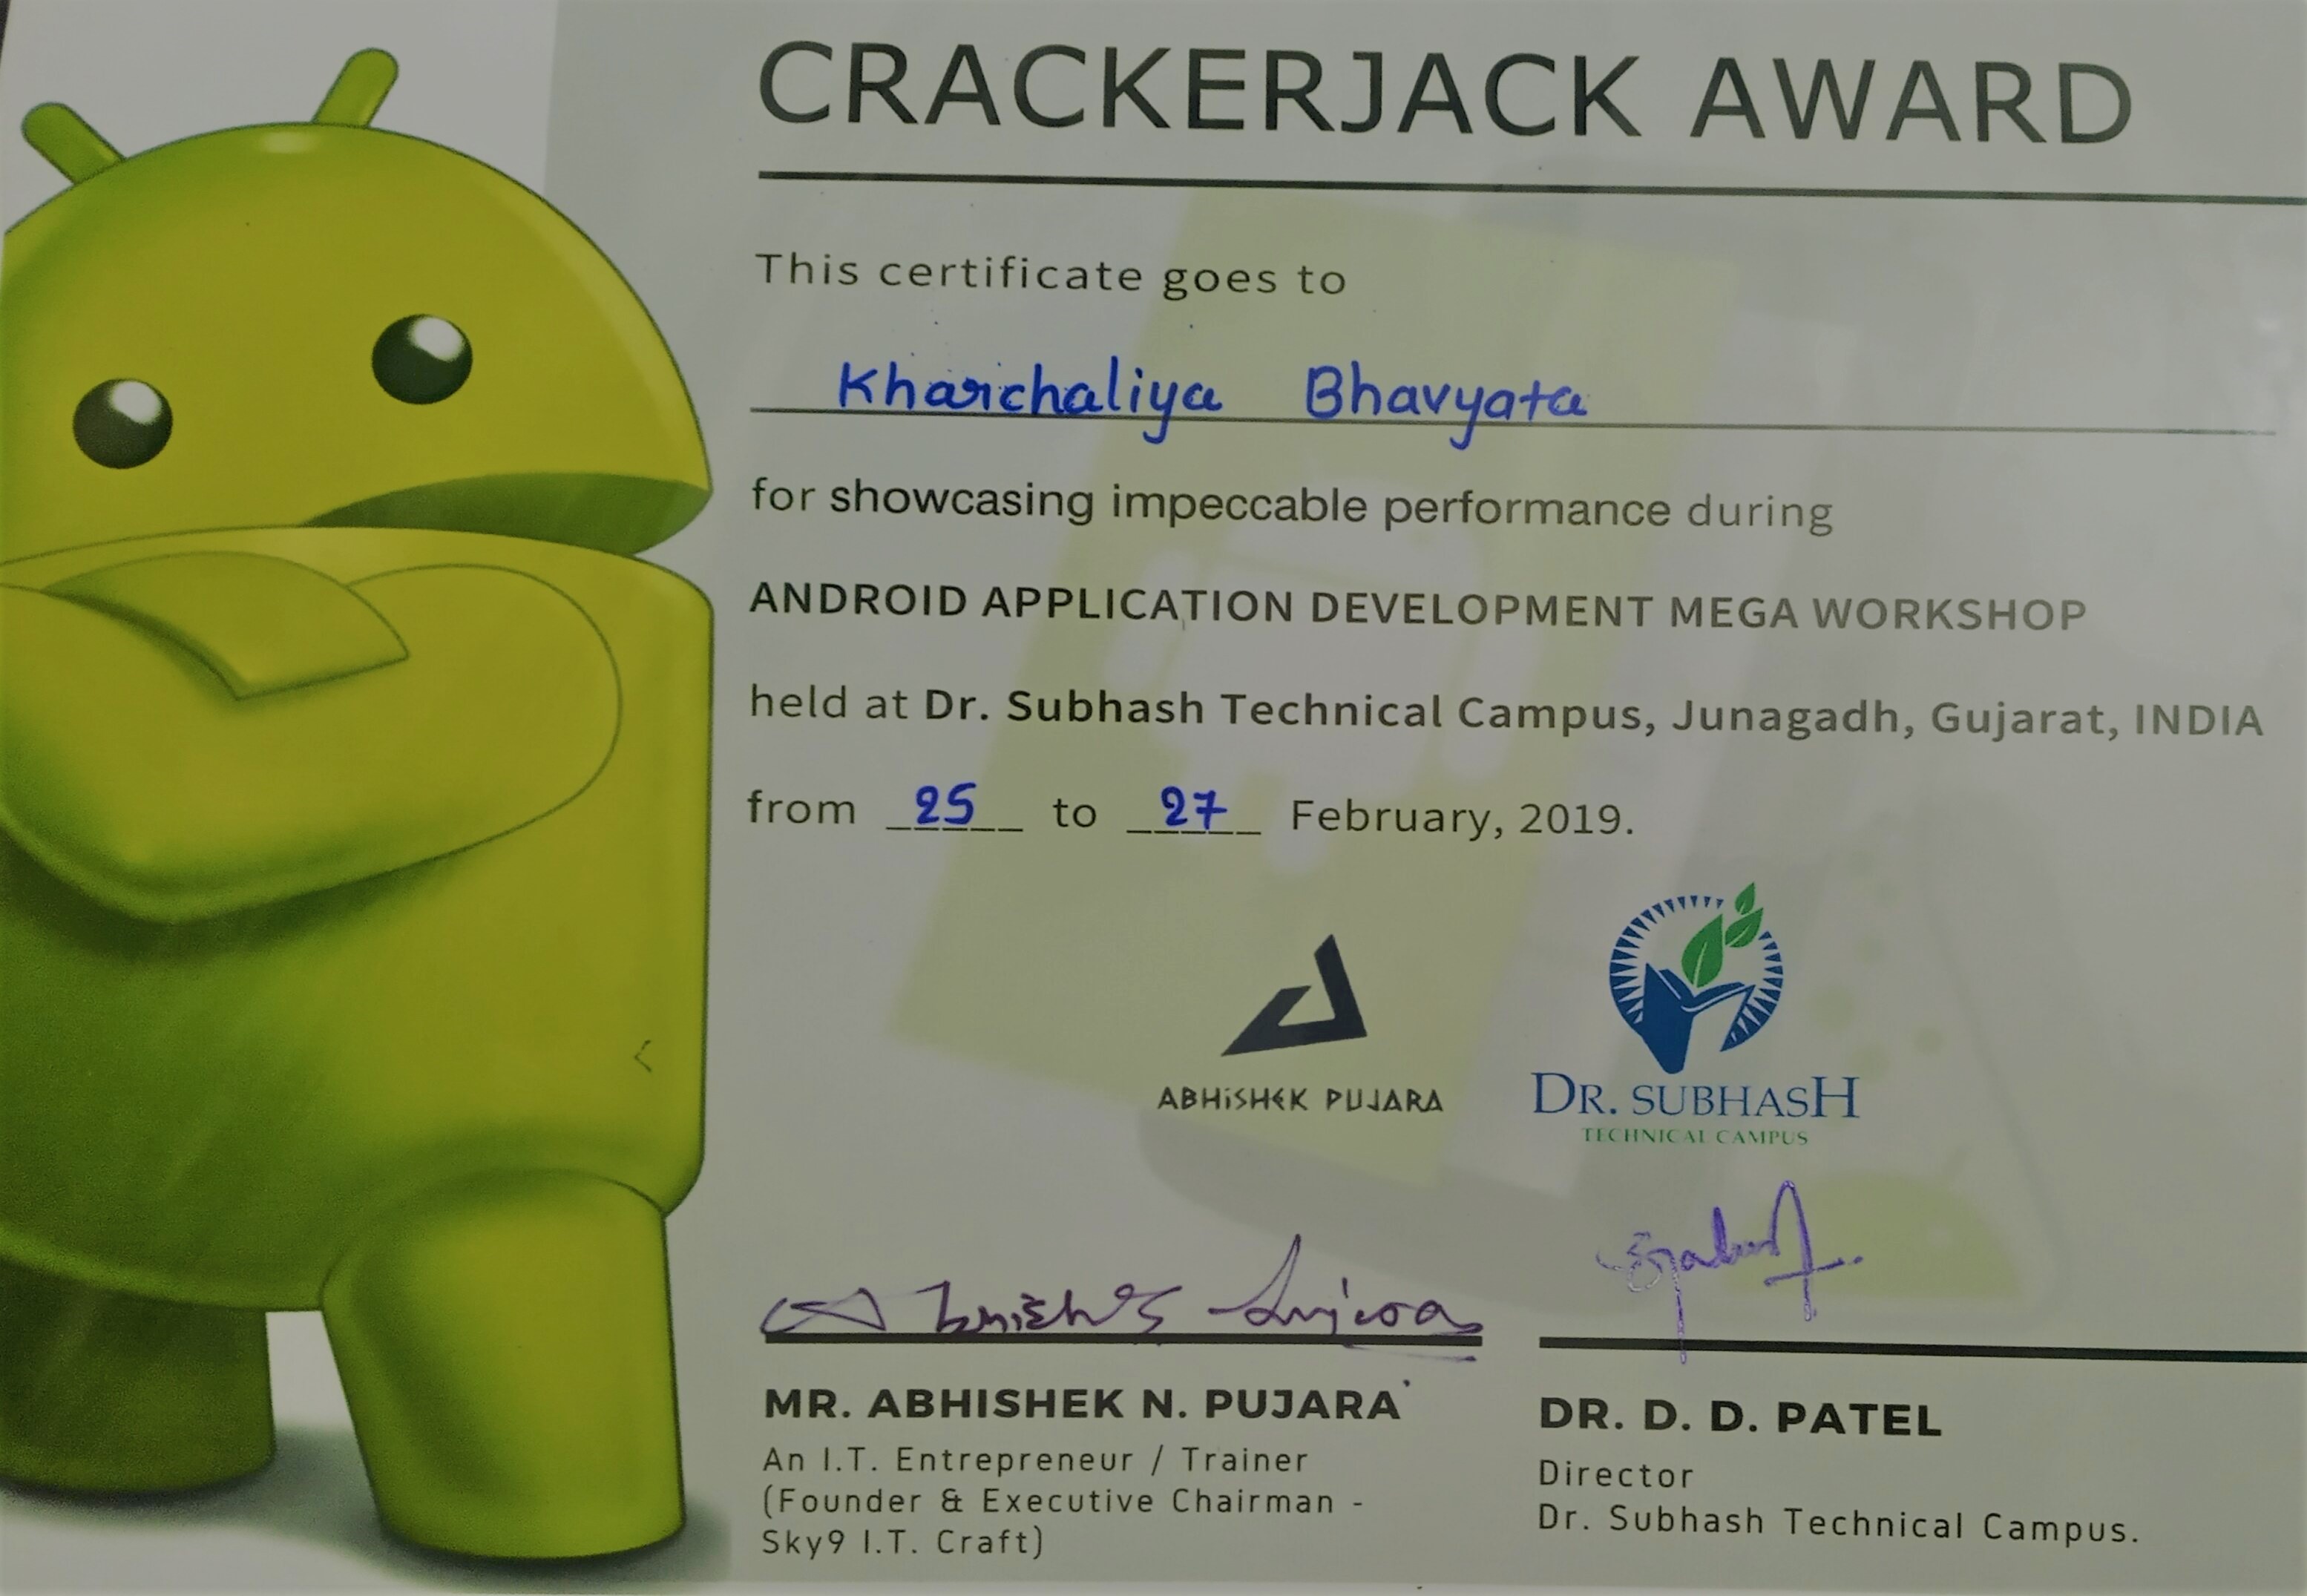 CRACKERJACK AWARD
This certificate goes to
Kharchaliya Bhavyata
for showcasing impeccable performance during
ANDROID APPLICATION DEVELOPMENT MEGA WORKSHOP
held at Dr. Subhash Technical Campus, Junagadh, Gujarat, INDIA
from 25 to 27 February, 2019.
ABHiSHEK PUJARA
DR. SUBHASH
TECHNICAL CAMPUS
MR. ABHISHEK N. PUJARA
An I.T. Entrepreneur / Trainer
(Founder & Executive Chairman -
Sky9 I.T. Craft)
DR. D. D. PATEL
Director
Dr. Subhash Technical Campus.